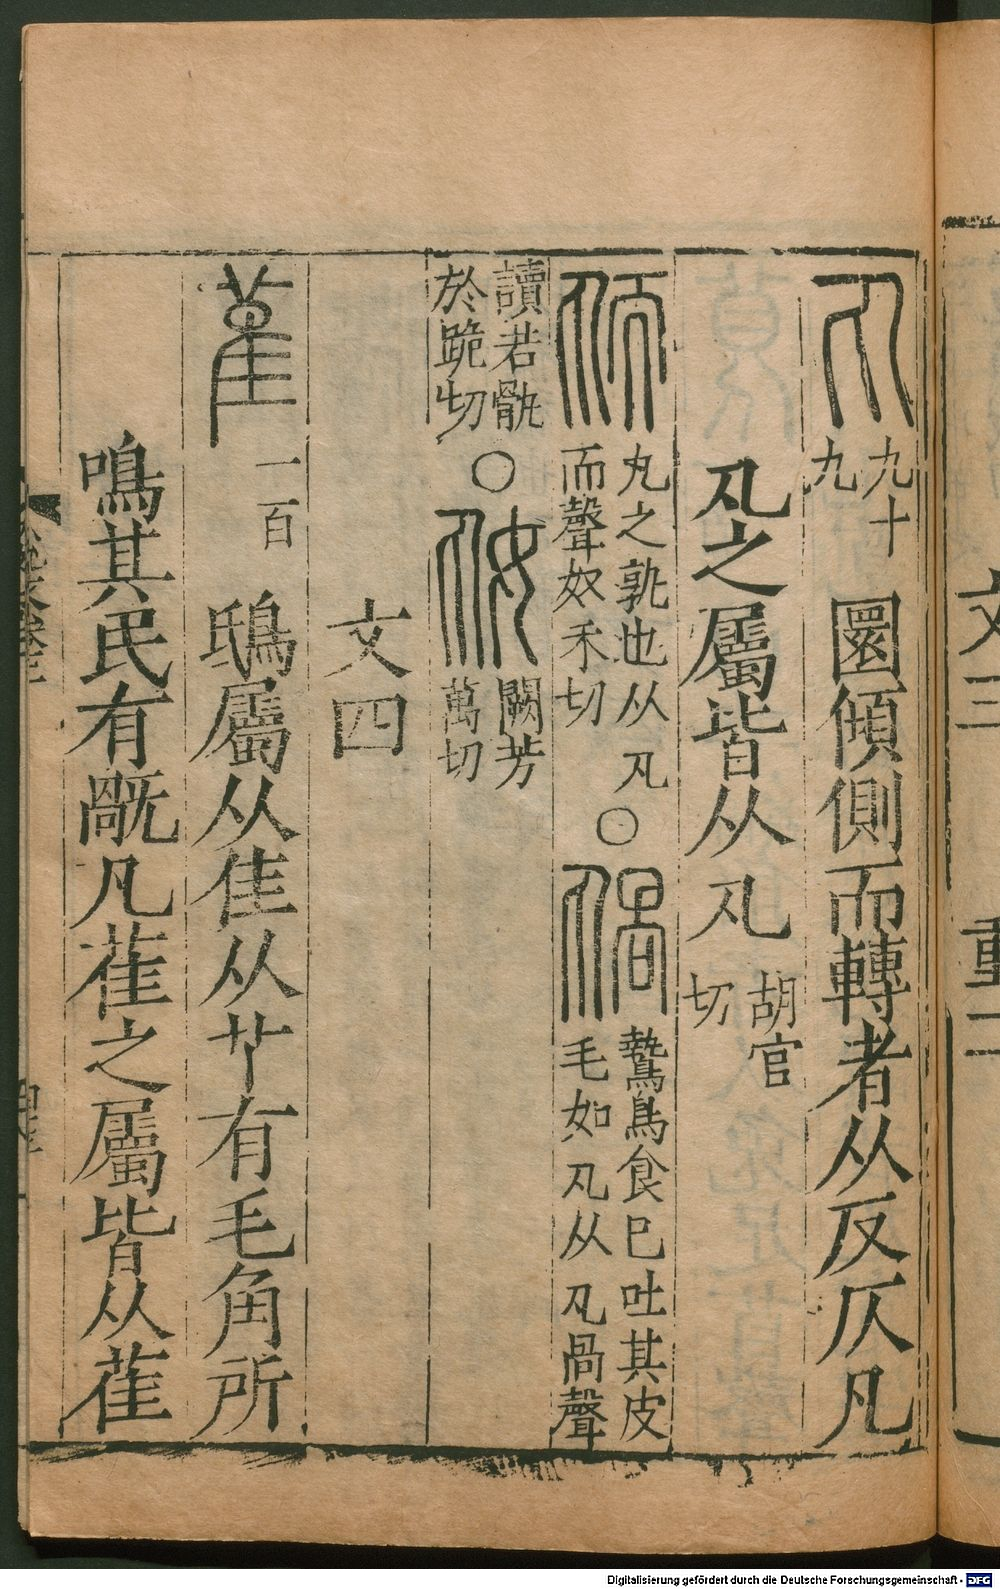 九十
九
圜傾側而轉者从反仄凡
丸之屬皆从丸
胡官
切
丸之孰也从丸
而聲奴禾切
○
鷙鳥食巳吐其皮
毛如丸从丸咼聲
讀若骫
於跪切
○
闕芳
萬切
文四
一百
鴟屬从隹从𦫳有毛角所
鳴其民有𤬪凡萑之屬皆从萑
文三
重二
Digitalisierung gefördert durch die Deutsche Forschungsgemeinschaft - DFG